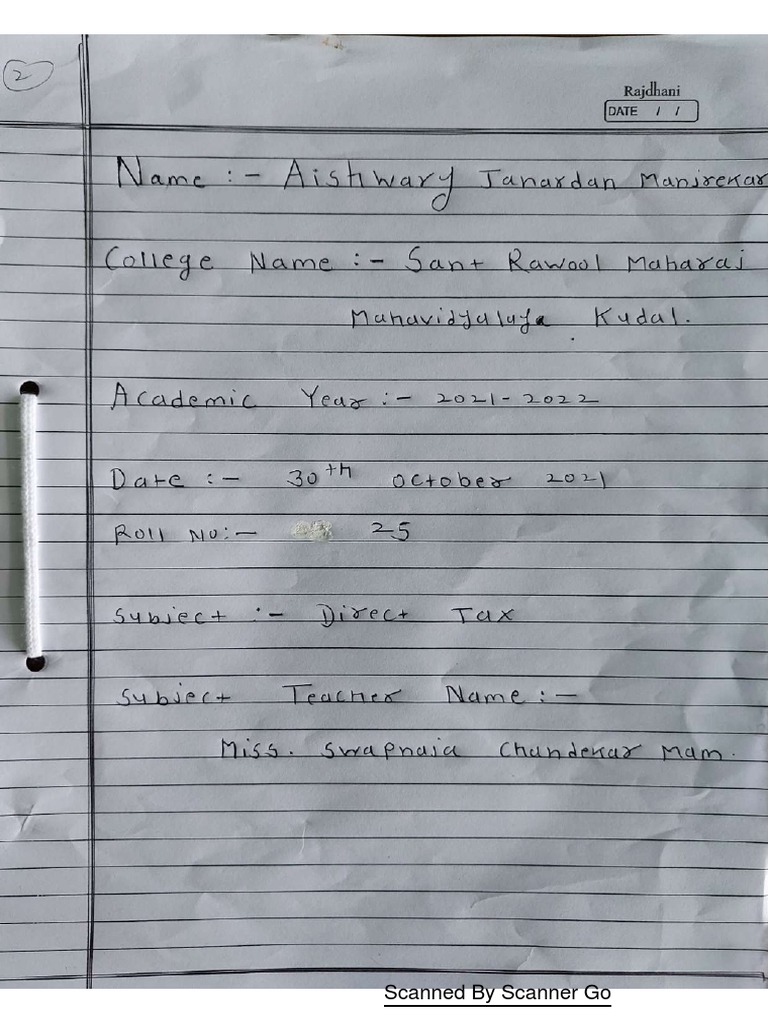 2
Rajdhani
DATE / /
Name :- Aishwary Janardan Manjrekar
College Name :- Sant Rawool Maharaj
Mahavidyalaya Kudal.
Academic Year :- 2021-2022
Date :- 30th October 2021
Roll No:- 25
Subject :- Direct Tax
Subject Teacher Name :-
Miss. Swapnaja Chandekar Mam.
Scanned By Scanner Go